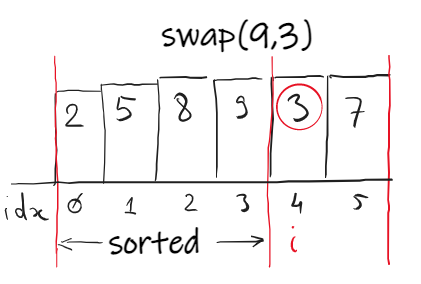 swap(9,3)
2 5 8 9 3 7
idx 0 1 2 3 4 5
sorted i